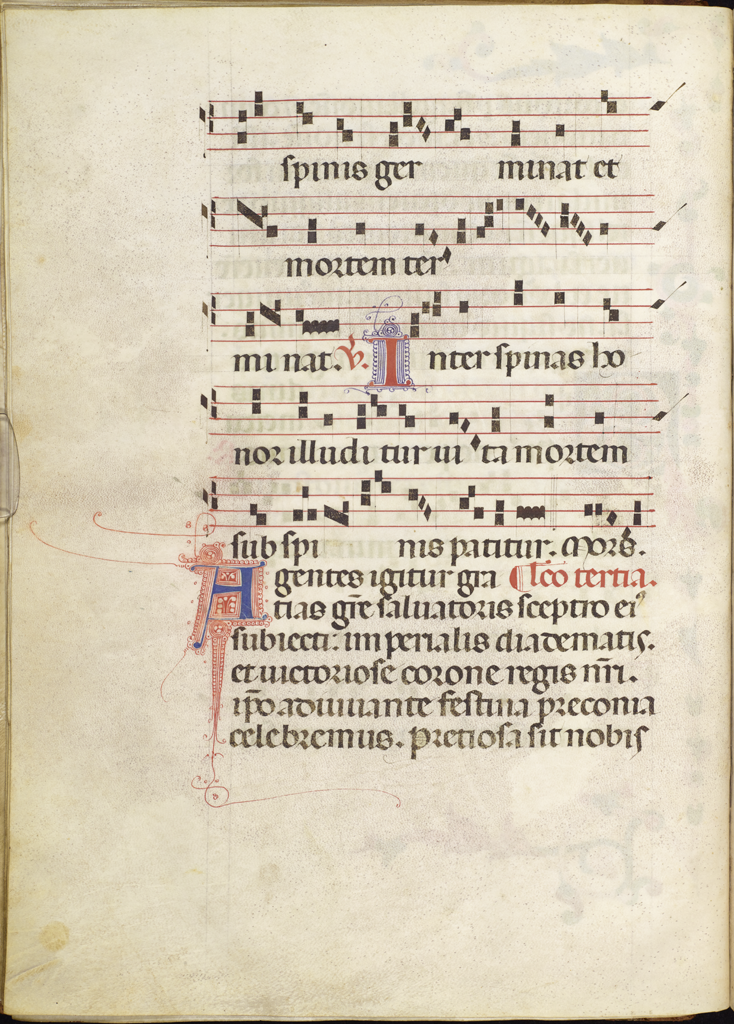 spinis ger minat et
mortem ter
mi nat. ℣. Inter spinas ho
nor illudi tur ui ta mortem
sub spi nis patitur. Mors.
Agentes igitur gra Lco tertia.
tias gre saluatoris sceptro ei
subiecti: imperialis diadematis.
et uictoriose corone regis nri.
ipo adiuuante festiua preconia
celebremus. Pretiosa sit nobis